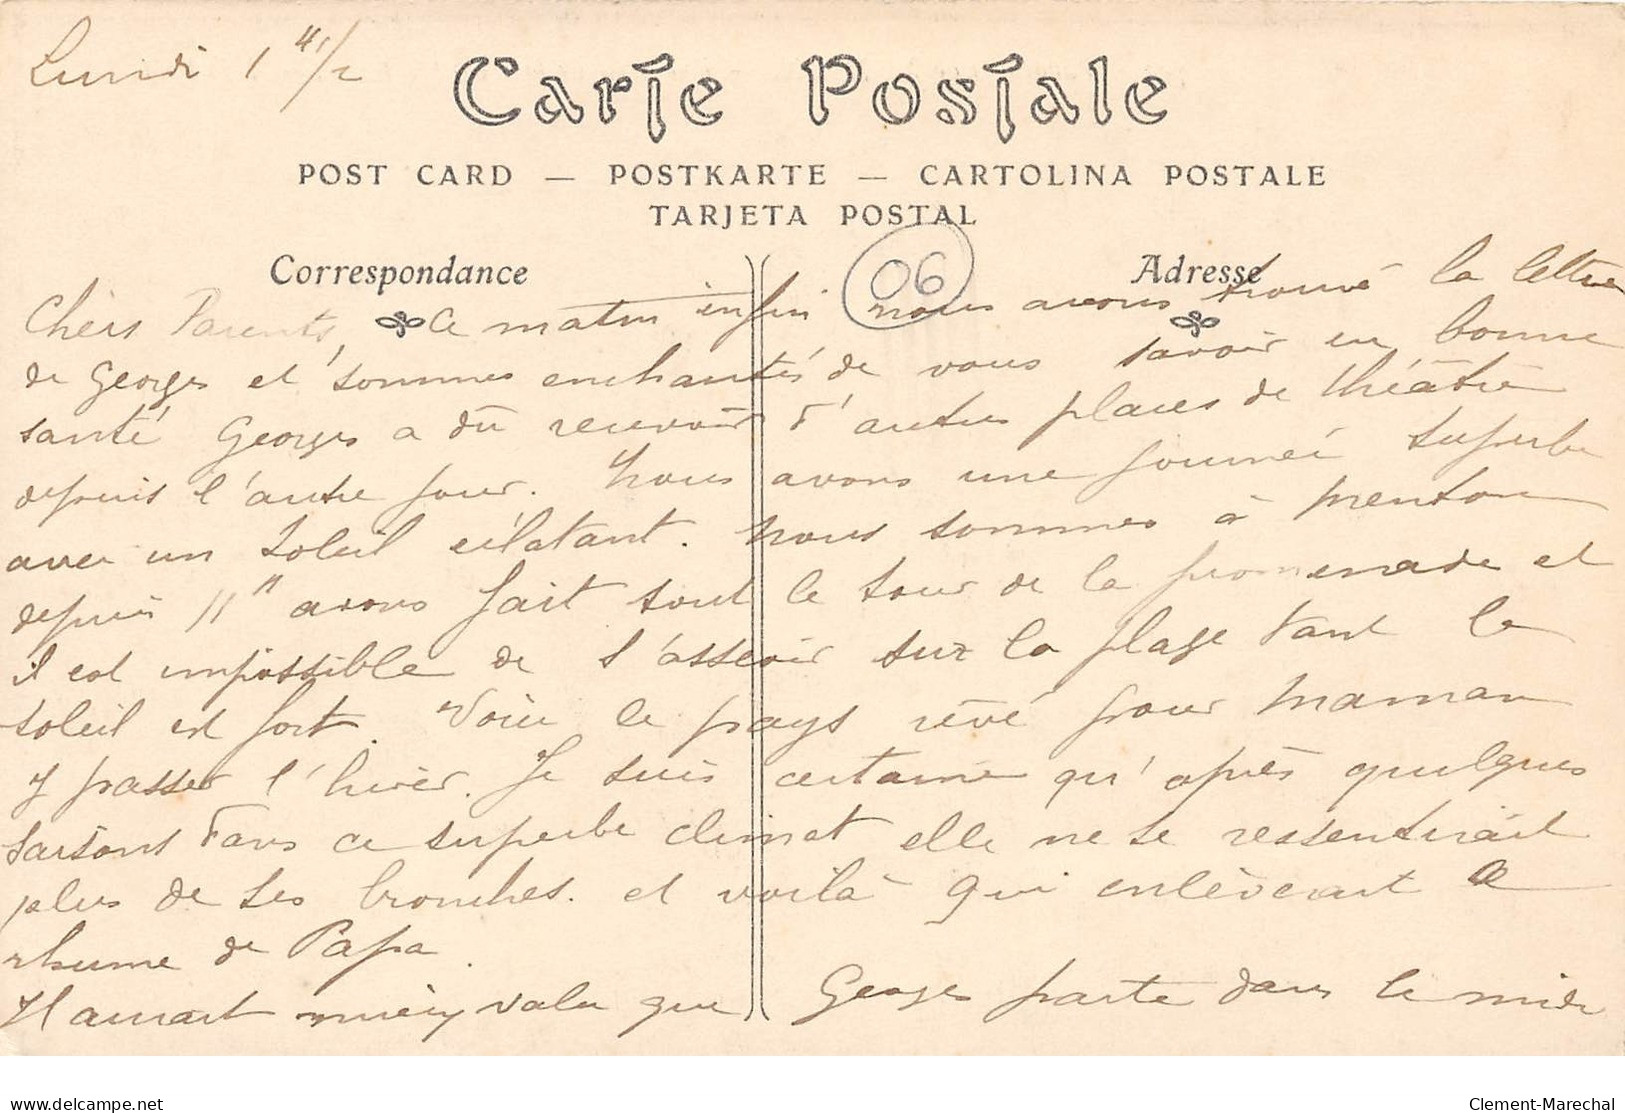 Lundi 1 h 1/2
Carte Postale
POST CARD — POSTKARTE — CARTOLINA POSTALE
TARJETA POSTAL
Correspondance
Adresse
06
Chers Parents, Ce matin enfin nous avons trouvé la lettre
de Georges et sommes enchantés de vous savoir en bonne
santé Georges a dû recevoir d'autres places de théâtre
depuis l'autre jour. Nous avons une journée superbe
avec un soleil éclatant. Nous sommes à Menton
depuis 11h avons fait tout le tour de la promenade et
il est impossible de s'asseoir sur la plage tant le
soleil est fort. Voici le pays rêvé pour Maman
y passer l'hiver. Je suis certaine qu'après quelques
saisons dans ce superbe climat elle ne se ressentirait
plus de ses bronches. et voilà qui enlèverait le
rhume de Papa.
Il aurait mieux valu que Georges parte dans le midi
delcampe.net
Clement-Marechal